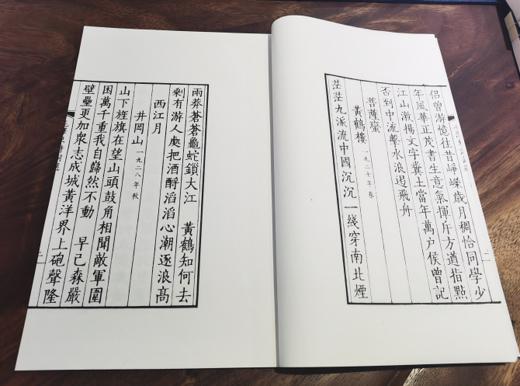 侣曾游憶往昔崢嶸歲月稠恰同學少
年風華正茂書生意氣揮斥方遒指點
江山激揚文字糞土當年萬户侯曾記
否到中流擊水浪遏飛舟
菩薩蠻
黃鶴樓 一九二七年春
茫茫九派流中國沉沉一綫穿南北煙
雨莽蒼蒼龜蛇鎖大江 黃鶴知何去
剩有游人處把酒酹滔滔心潮逐浪高
西江月
井岡山 一九二八年秋
山下旌旗在望山頭鼓角相聞敵軍圍
困萬千重我自巋然不動 早已森嚴
壁壘更加衆志成城黃洋界上砲聲隆